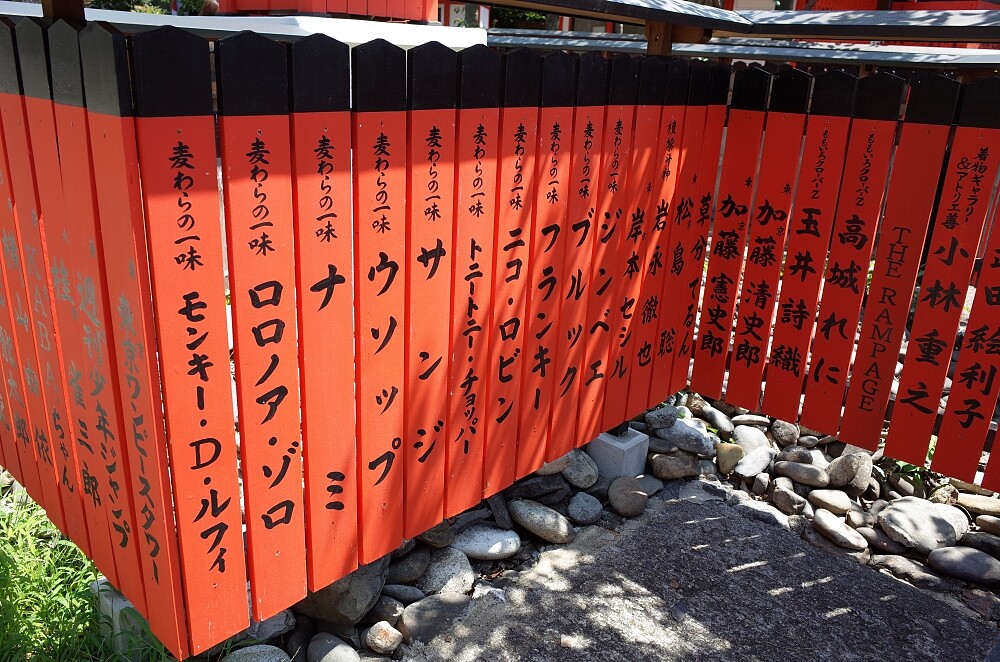 東京ワンピースタワー
麦わらの一味 モンキー・D・ルフィ
麦わらの一味 ロロノア・ゾロ
麦わらの一味 ナミ
麦わらの一味 ウソップ
麦わらの一味 サンジ
麦わらの一味 トニートニー・チョッパー
麦わらの一味 ニコ・ロビン
麦わらの一味 フランキー
麦わらの一味 ブルック
麦わらの一味 ジンベエ
岸本セシル
岩永徹也
松島聡
草分てるん
加藤憲史郎
加藤清史郎
ももいろクローバーZ 玉井詩織
ももいろクローバーZ 高城れに
THE RAMPAGE
着物ギャラリー&アトリエ善 小林重之
絵利子
週刊少年ジャンプ